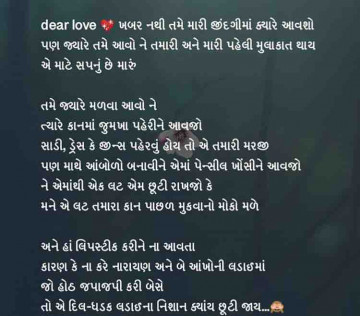 dear love 💖 ખબર નથી તમે મારી જીંદગીમાં ક્યારે આવશો
પણ જ્યારે તમે આવો ને તમારી અને મારી પહેલી મુલાકાત થાય
એ માટે સપનું છે મારું
તમે જ્યારે મળવા આવો ને
ત્યારે કાનમાં જુમખા પહેરીને આવજો
સાડી, ડ્રેસ કે જીન્સ પહેરવું હોય તો એ તમારી મરજી
પણ માથે આંબોળો બનાવીને એમાં પેન્સીલ ખોંસીને આવજો
ને એમાંથી એક લટ એમ છૂટી રાખજો કે
મને એ લટ તમારા કાન પાછળ મુકવાનો મોકો મળે
અને હાં લિપસ્ટીક કરીને ના આવતા
કારણ કે ના કરે નારાયણ અને બે આંખોની લડાઈમાં
જો હોઠ જપાજપી કરી બેસે
તો એ દિલ-ધડક લડાઈના નિશાન ક્યાંય છૂટી જાય...🙈